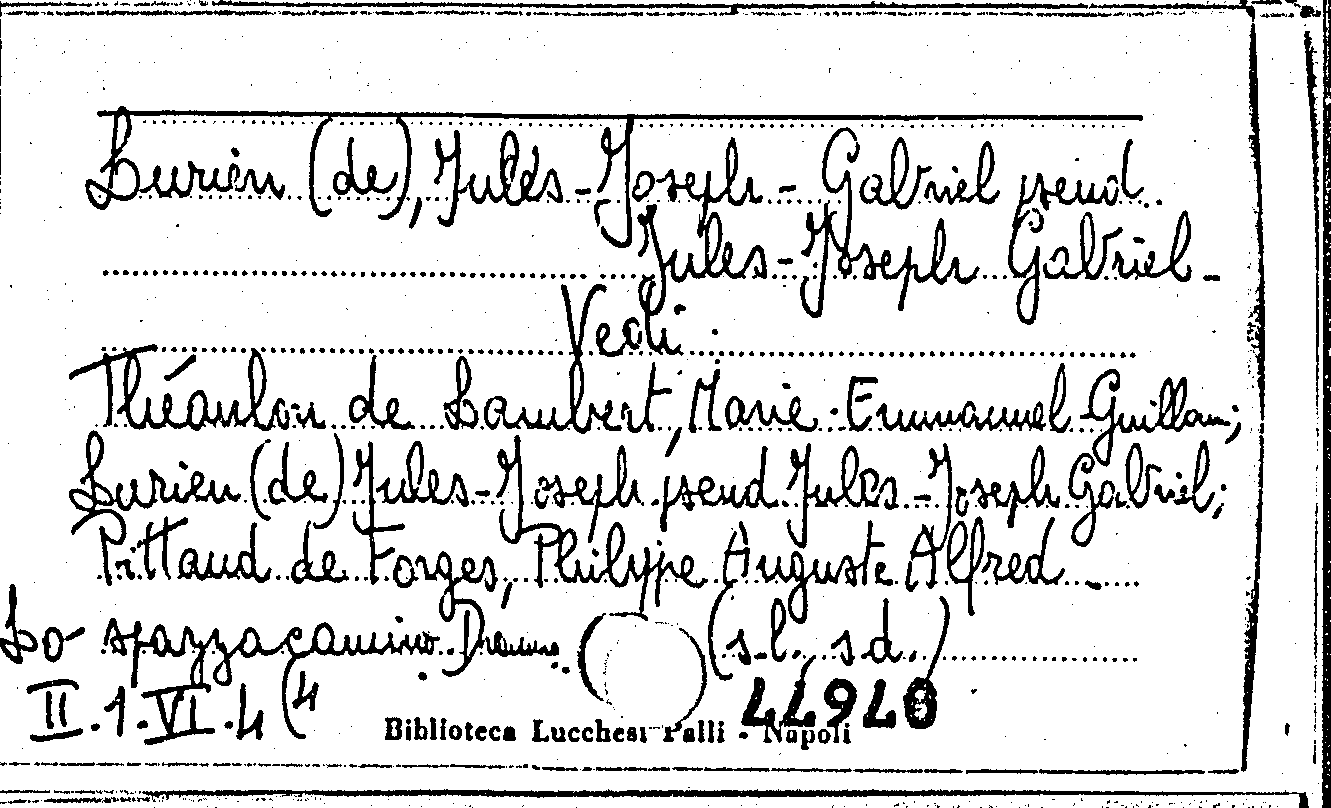 Lurien (de), Jules-Joseph-Gabriel pseud.
Jules-Joseph Gabriel-
Vedi.
Théaulon de Lambert, Marie-Emmanuel-Guillam;
Lurien (de) Jules-Joseph pseud Jules-Joseph Gabriel;
Pittaud de Forges, Philippe Auguste Alfred -
Lo spazzacamino. Dramma. (s.l., s.d.)
II.1.VI.4(4 44940
Biblioteca Lucchesi Palli - Napoli